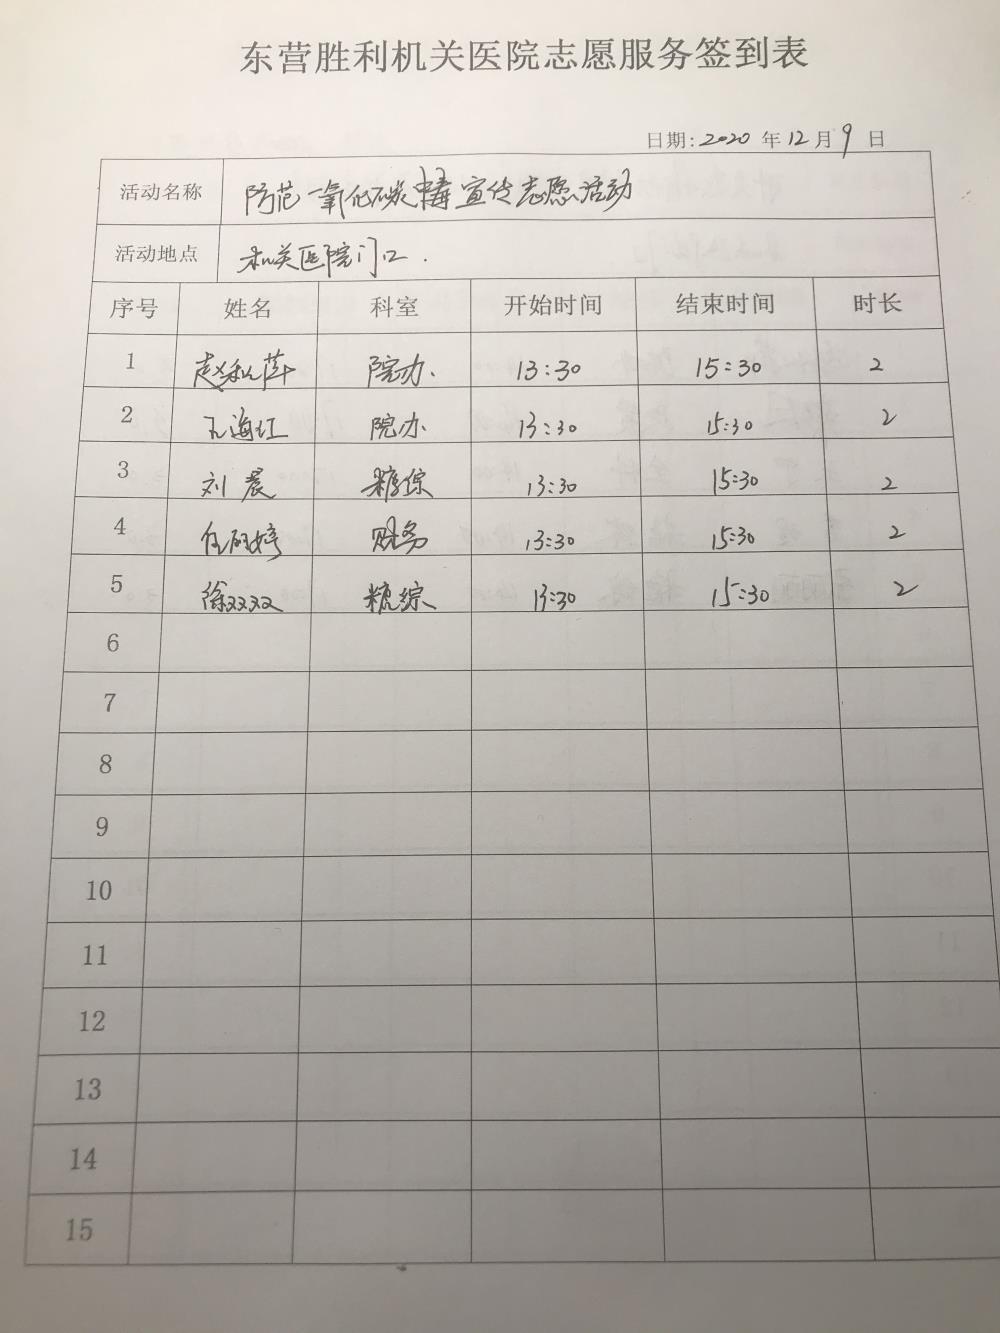 东营胜利机关医院志愿服务签到表
日期: 2020 年 12 月 9 日
活动名称 防范一氧化碳中毒宣传志愿活动
活动地点 机关医院门口.
序号 姓名 科室 开始时间 结束时间 时长
1 赵秋萍 院办. 13:30 15:30 2
2 王海红 院办 13:30 15:30 2
3 刘晨 糖综 13:30 15:30 2
4 任婷 财务 13:30 15:30 2
5 徐双双 糖综 13:30 15:30 2
6
7
8
9
10
11
12
13
14
15